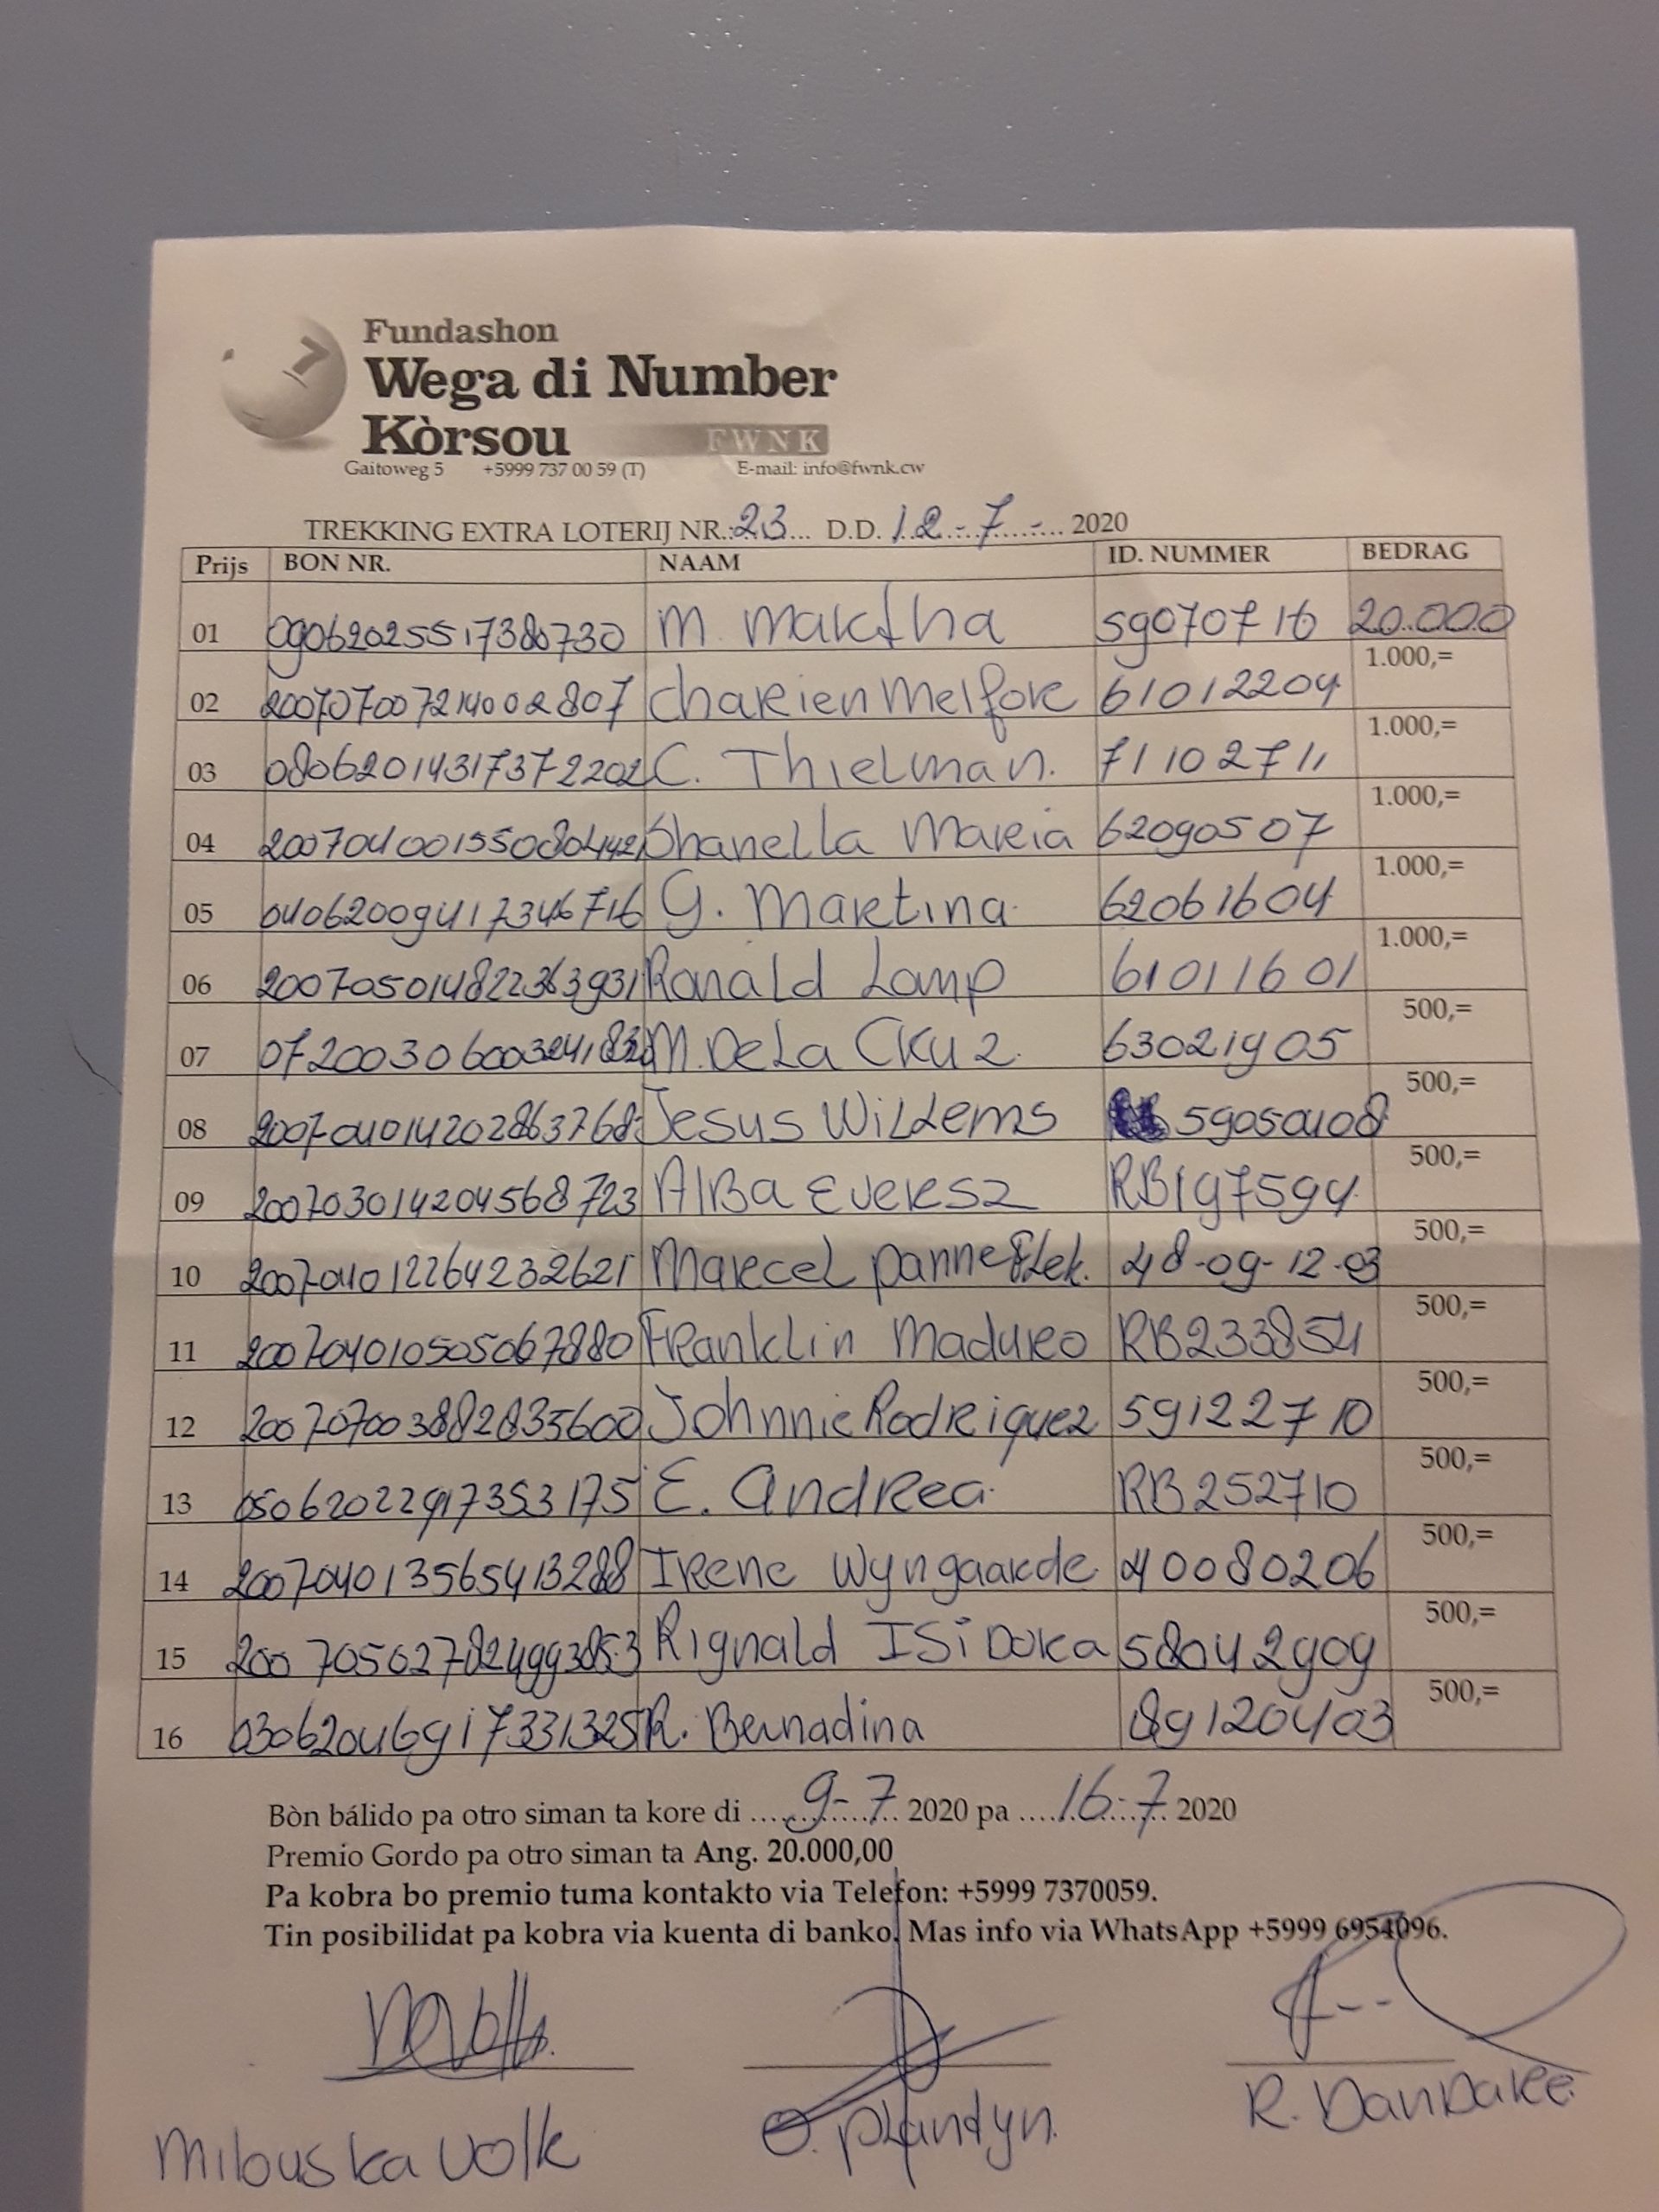 Fundashon
Wega di Number
Kòrsou FWNK
Gaitoweg 5 +5999 737 00 59 (T) E-mail: info@fwnk.cw
TREKKING EXTRA LOTERIJ NR.:23... D.D. 12.-.7.-... 2020
Prijs BON NR. NAAM ID. NUMMER BEDRAG
01 09062025517380730 M. Martha 59070716 20.000
02 200707007214002807 Charien Melfor 61012204 1.000,=
03 08062014317372202 C. Thielman. 71102711 1.000,=
04 Shanella Maria 62090507 1.000,=
05 04062009417346716 G. Martina 62061604 1.000,=
06 2007050148222363931 Ronald Lamp 61011601 1.000,=
07 M. De La Cruz. 63021905 500,=
08 200704014202863768 Jesus Willems 59050408 500,=
09 200703014204568723 Alba Evertsz RB197594 500,=
10 200704012264232621 Marcel 48-09-12-03 500,=
11 200704010505067880 Franklin Maduro RB233854 500,=
12 200707003882835600 Johnnie Rodriquez 59122710 500,=
13 05062022917353175 E. Andrea RB252710 500,=
14 200704013565413288 Irene Wyngaarde 40080206 500,=
15 Rignald Isidora 58042909 500,=
16 03062046917331325 R. Bernadina 89120403 500,=
Bòn bálido pa otro siman ta kore di ....9-7.... 2020 pa ....16-7.. 2020
Premio Gordo pa otro siman ta Ang. 20.000,00
Pa kobra bo premio tuma kontakto via Telefon: +5999 7370059.
Tin posibilidat pa kobra via kuenta di banko. Mas info via WhatsApp +5999 6954096.
Milouska Volk O. Plantyn. R. Dandare